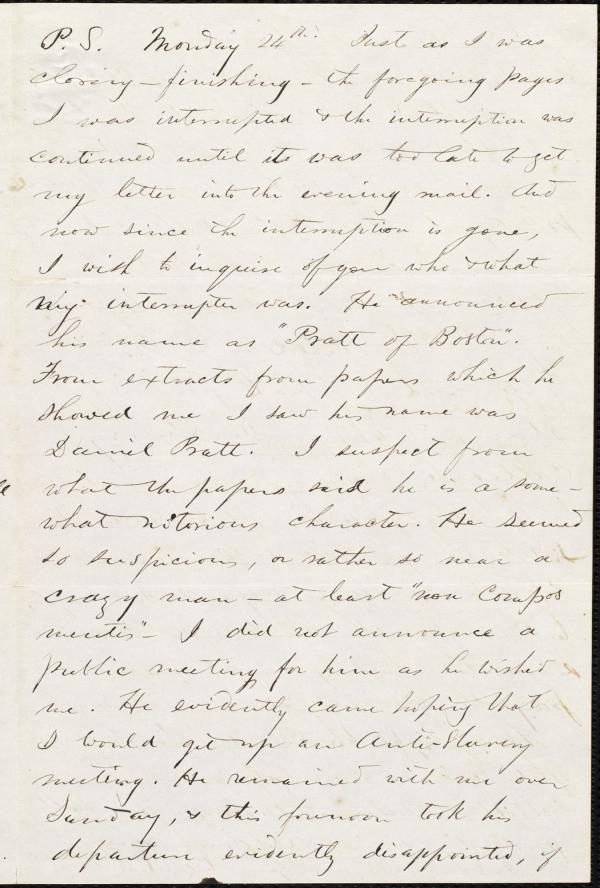 P.S. Monday 24th. Just as I was
closing - finishing - the foregoing pages
I was interrupted & the interruption was
continued until its was too late to get
my letter into the evening mail. And
now since the interruption is gone,
I wish to inquire of you who & what
my interrupter was. He announced
his name as "Pratt of Boston".
From extracts from papers which he
showed me I saw his name was
Daniel Pratt. I suspect from
what the papers said he is a some-
what notorious character. He seemed
so suspicious, or rather so near a
crazy man - at least "non Compos
mentis" - I did not announce a
public meeting for him as he wished
me. He evidently came hoping that
I would get up an Anti-Slavery
meeting. He remained with me over
Sunday, & this forenoon took his
departure evidently disappointed, if